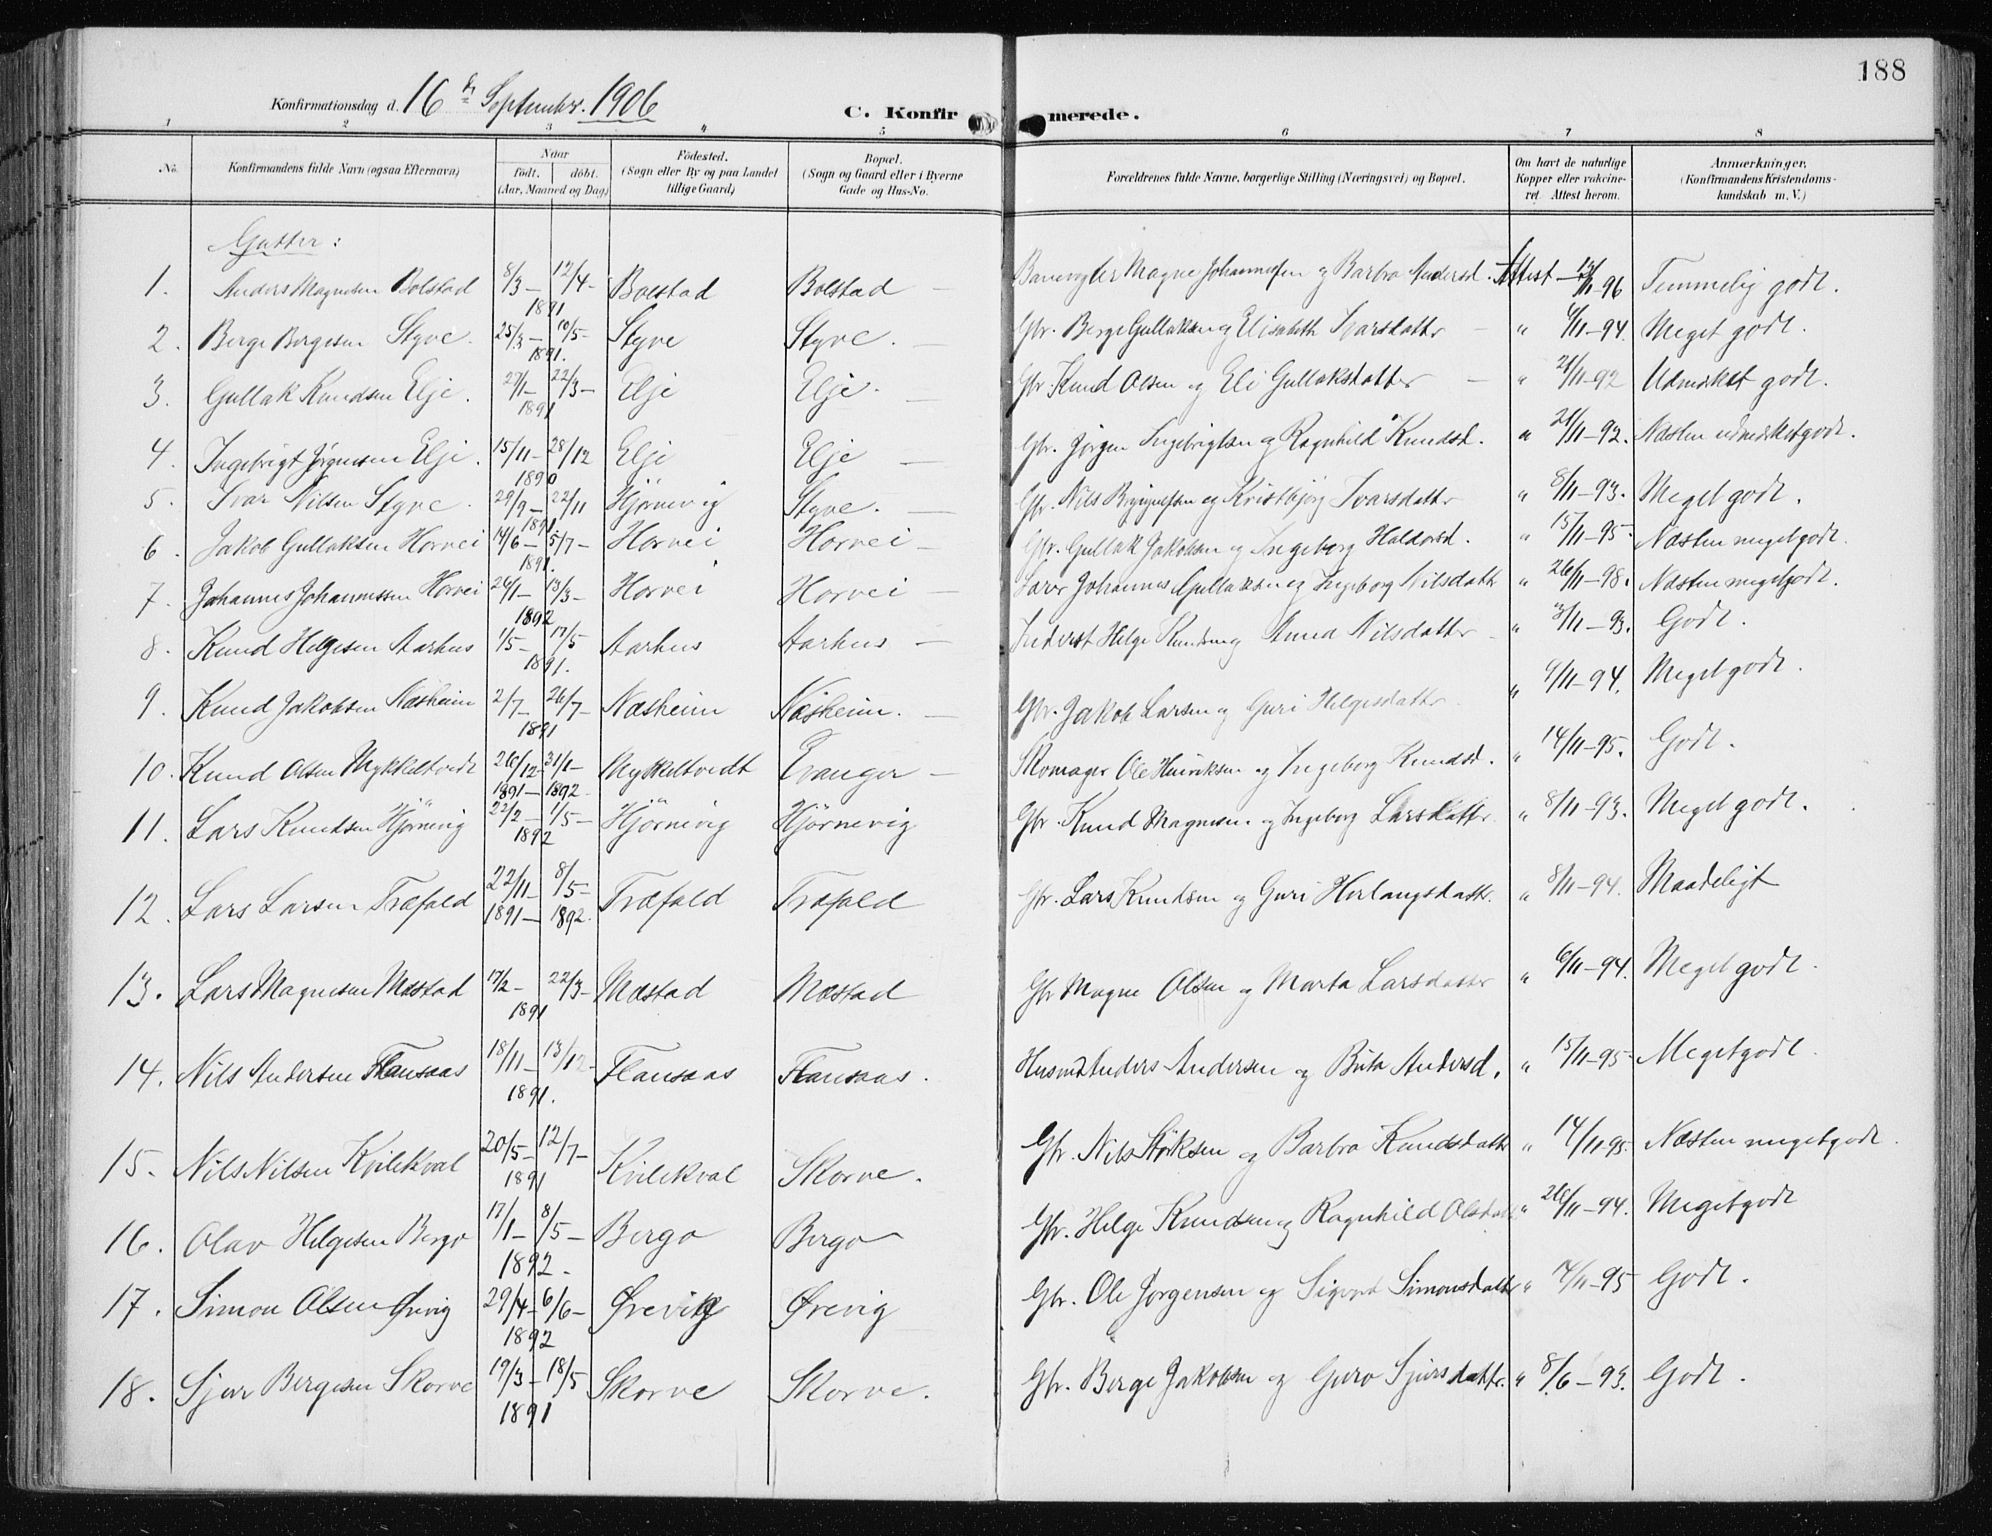 188
Konfirmationsdag d. 16de September. 1906
C. Konfirmerede.
1 2 3 4 5 6 7 8
No. Konfirmandens fulde Navn (ogsaa Efternavn) Naar født. døbt. (Aar, Maaned og Dag) Fødested. (Sogn eller By og paa Landet tillige Gaard) Bopæl. (Sogn og Gaard eller i Byerne Gade og Hus-No. Forældrenes fulde Navne, borgerlige Stilling (Næringsvei) og Bopæl. Om havt de naturlige Kopper eller vakcineret. Attest herom. Anmærkninger. (Konfirmandens Kristendomskundskab m. V.)
Gutter:
1. Anders Magnesen Bolstad 8/3 – 12/4 – 1891 Bolstad Bolstad – Banevogter Magne Johannessen og Barbro Andersd. Attest – 96 Temmelig godt.
2. Berge Bergesen Styve 25/3 – 10/5 – 1891. Styve Styve. – Gbr. Berge Gullaksen og Elisabeth Ivarsdatter – " 6/11–94. Meget godt.
3. Gullak Knudsen Elje. 27/1 – 22/3 – 1891 Elje Elje. – Gbr. Knud Olsen og Eli Gullaksdatter – " 21/11–92 Udmærket godt.
4. Ingebrigt Jørgensen Elje. 15/11 – 28/12 1890 Elje Elje – Gbr. Jørgen Ingebrigtsen og Ragnhild Knudsd. " 21/11–92. Næsten udmærket godt.
5. Ivar Nilsen Styve. 29/9 – 22/11 1891 Hjørnevig Styve. – Gbr. Nils Brynjulfsen og Kristbjørg Ivarsdatter " 8/11–93. Meget godt.
6. Jakob Gullaksen Horvei 14/6 – 5/7 – 1891. Horvei Horvei – Gbr. Gullak Jakobsen og Ingeborg Haldorsd. " 15/11–95. Næsten meget godt.
7. Johannes Johannessen Horvei 24/1 – 13/3 – 1892 Horvei Horvei – Johannes Gullaksen og Ingeborg Nilsdatter " 26/11–98. Næsten meget godt.
8. Knud Helgesen Aarhus 1/5 – 17/5 1891. Aarhus Aarhus – Inderst Helge Knudsen og Anna Nilsdatter – " 3/11–93. Godt.
9. Knud Jakobsen Næsheim 2/7 – 26/7 – 1891 Næsheim Næsheim. – Gbr. Jakob Larsen og Guri Helgesdatter " 6/11–94. Meget godt.
10. Knud Olsen Mykkeltvedt 26/12 – 31/1 – 1891 – 1892 Mykkeltvedt Evanger – Skomager Ole Henriksen og Ingeborg Knudsd. " 14/11–95. Godt.
11. Lars Knudsen Hjørnevig 22/2 – 1/5 – 1892 Hjørnevig Hjørnevig Gbr. Knud Magnesen og Ingeborg Larsdatter. " 8/11–93. Meget godt.
12. Lars Larsen Træfald 22/11 – 8/5 – 1891 – 1892. Træfald Træfald Gbr. Lars Knudsen og Guri Herlaugsdatter. " 8/11–94. Maadeligt
13. Lars Magnesen Mæstad 17/2 – 22/3 – 1891 Mæstad Mæstad Gbr Magne Olsen og Marta Larsdatter " 6/11–94. Meget godt.
14. Nils Andersen Flansaas 18/11 – 13/12 – 1891. Flansaas Flansaas. Husmd Anders Andersen og Brita Andersd. " 15/11–95. Meget godt.
15. Nils Nilsen Kvilekval 20/5 – 12/7 – 1891 Kvilekval Skorve. Gbr. Nils Størksen og Barbro Knudsdatter " 14/11 95. Næsten meget godt.
16. Olav Helgesen Bergo 17/1 – 8/5 – 1892. Bergo Bergo Gbr. Helge Knudsen og Ragnhild " 26/11–94. Meget godt
17. Simon Olsen Ørevig 29/4 – 6/6 – 1892 Ørevig Ørevig Gbr. Ole Jørgensen og Simonsdatter " 14/11–95 Godt.
18. Sjur Bergesen Skorve 19/3 – 18/5 1891 Skorve Skorve. Gbr. Berge Jakobsen og Guro Sjursdatter. " 8/6 – 93. Godt.